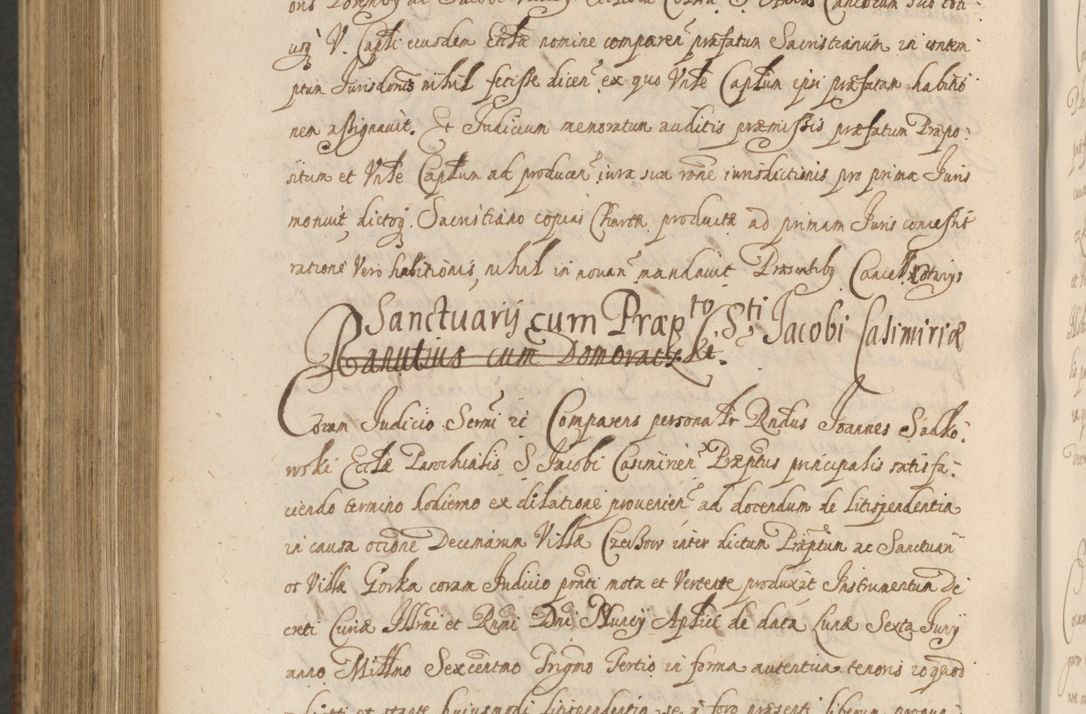 usq̃ V. Capli eiusdem Ecclæ nomine comparen̄ præfatum Sacristianum in contem
ptum Jurisdonis nihil fecisse dicen̄ ex quo Vnble Caplum ipsi præfatam habitio
nem assignauit. Et Judicium memoratum auditis præmissis præfatum Præpo:
situm et Vnble Caplum ad producen̄ iura sua rone iurisdictionis pro prima Juris
monuit, dictoq̃ Sacristiano copias Chartæ productæ ad primam Juris concessit
ratione Vero habitionis, nihil in nouan̄ mandauit Præsentibq
Sanctuarij cum Præpto S.ti Jacobi Casimiriæ
Ranutius cum Domoracz. &t.
Coram Judicio Sermi rc Comparens personalr Rndus Joannes Sadko:
wski Ecclæ Parochialis S. Jacobi Casimirien̄ Præptus principalis satisfa:
ciendo termino hodierno ex dilatione prouenien̄ ad docendum de litispendentia
in causa occõne Decimarum Villæ Czeissow inter dictum Præptum ac Sanctuan̄
os Villæ Gorka coram Judicio pnti mota et Vertente produxit Instrumentum De
creti Curiæ Illrmi et Rndmi Dni Nuncij Aplici de data Lunæ Sexta Junij
anno Millmo Sexcentmo Trigmo Tertio in forma autentica tenoris